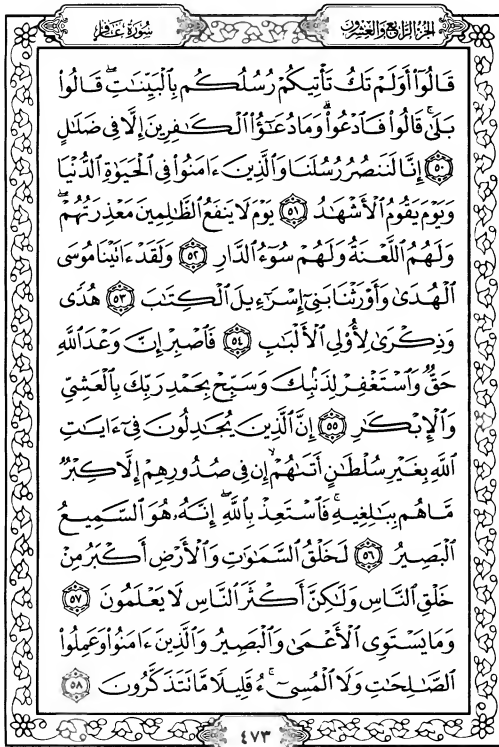 سُورَةُ غَافِرٍ
الجُزْءُ الرَّابِعُ وَالعِشْرُونَ
قَالُوٓا۟ أَوَلَمْ تَكُ تَأْتِيكُمْ رُسُلُكُم بِٱلْبَيِّنَـٰتِ ۖ قَالُوا۟
بَلَىٰ ۚ قَالُوا۟ فَٱدْعُوا۟ ۗ وَمَا دُعَـٰٓؤُا۟ ٱلْكَـٰفِرِينَ إِلَّا فِى ضَلَـٰلٍ
٥٠ إِنَّا لَنَنصُرُ رُسُلَنَا وَٱلَّذِينَ ءَامَنُوا۟ فِى ٱلْحَيَوٰةِ ٱلدُّنْيَا
وَيَوْمَ يَقُومُ ٱلْأَشْهَـٰدُ ٥١ يَوْمَ لَا يَنفَعُ ٱلظَّـٰلِمِينَ مَعْذِرَتُهُمْ ۖ
وَلَهُمُ ٱللَّعْنَةُ وَلَهُمْ سُوٓءُ ٱلدَّارِ ٥٢ وَلَقَدْ ءَاتَيْنَا مُوسَى
ٱلْهُدَىٰ وَأَوْرَثْنَا بَنِىٓ إِسْرَٰٓءِيلَ ٱلْكِتَـٰبَ ٥٣ هُدًى
وَذِكْرَىٰ لِأُو۟لِى ٱلْأَلْبَـٰبِ ٥٤ فَٱصْبِرْ إِنَّ وَعْدَ ٱللَّهِ
حَقٌّ وَٱسْتَغْفِرْ لِذَنۢبِكَ وَسَبِّحْ بِحَمْدِ رَبِّكَ بِٱلْعَشِىِّ
وَٱلْإِبْكَـٰرِ ٥٥ إِنَّ ٱلَّذِينَ يُجَـٰدِلُونَ فِىٓ ءَايَـٰتِ
ٱللَّهِ بِغَيْرِ سُلْطَـٰنٍ أَتَىٰهُمْ ۙ إِن فِى صُدُورِهِمْ إِلَّا كِبْرٌ
مَّا هُم بِبَـٰلِغِيهِ ۚ فَٱسْتَعِذْ بِٱللَّهِ ۖ إِنَّهُۥ هُوَ ٱلسَّمِيعُ
ٱلْبَصِيرُ ٥٦ لَخَلْقُ ٱلسَّمَـٰوَٰتِ وَٱلْأَرْضِ أَكْبَرُ مِنْ
خَلْقِ ٱلنَّاسِ وَلَـٰكِنَّ أَكْثَرَ ٱلنَّاسِ لَا يَعْلَمُونَ ٥٧
وَمَا يَسْتَوِى ٱلْأَعْمَىٰ وَٱلْبَصِيرُ وَٱلَّذِينَ ءَامَنُوا۟ وَعَمِلُوا۟
ٱلصَّـٰلِحَـٰتِ وَلَا ٱلْمُسِىٓءُ ۚ قَلِيلًا مَّا تَتَذَكَّرُونَ ٥٨
٤٧٣